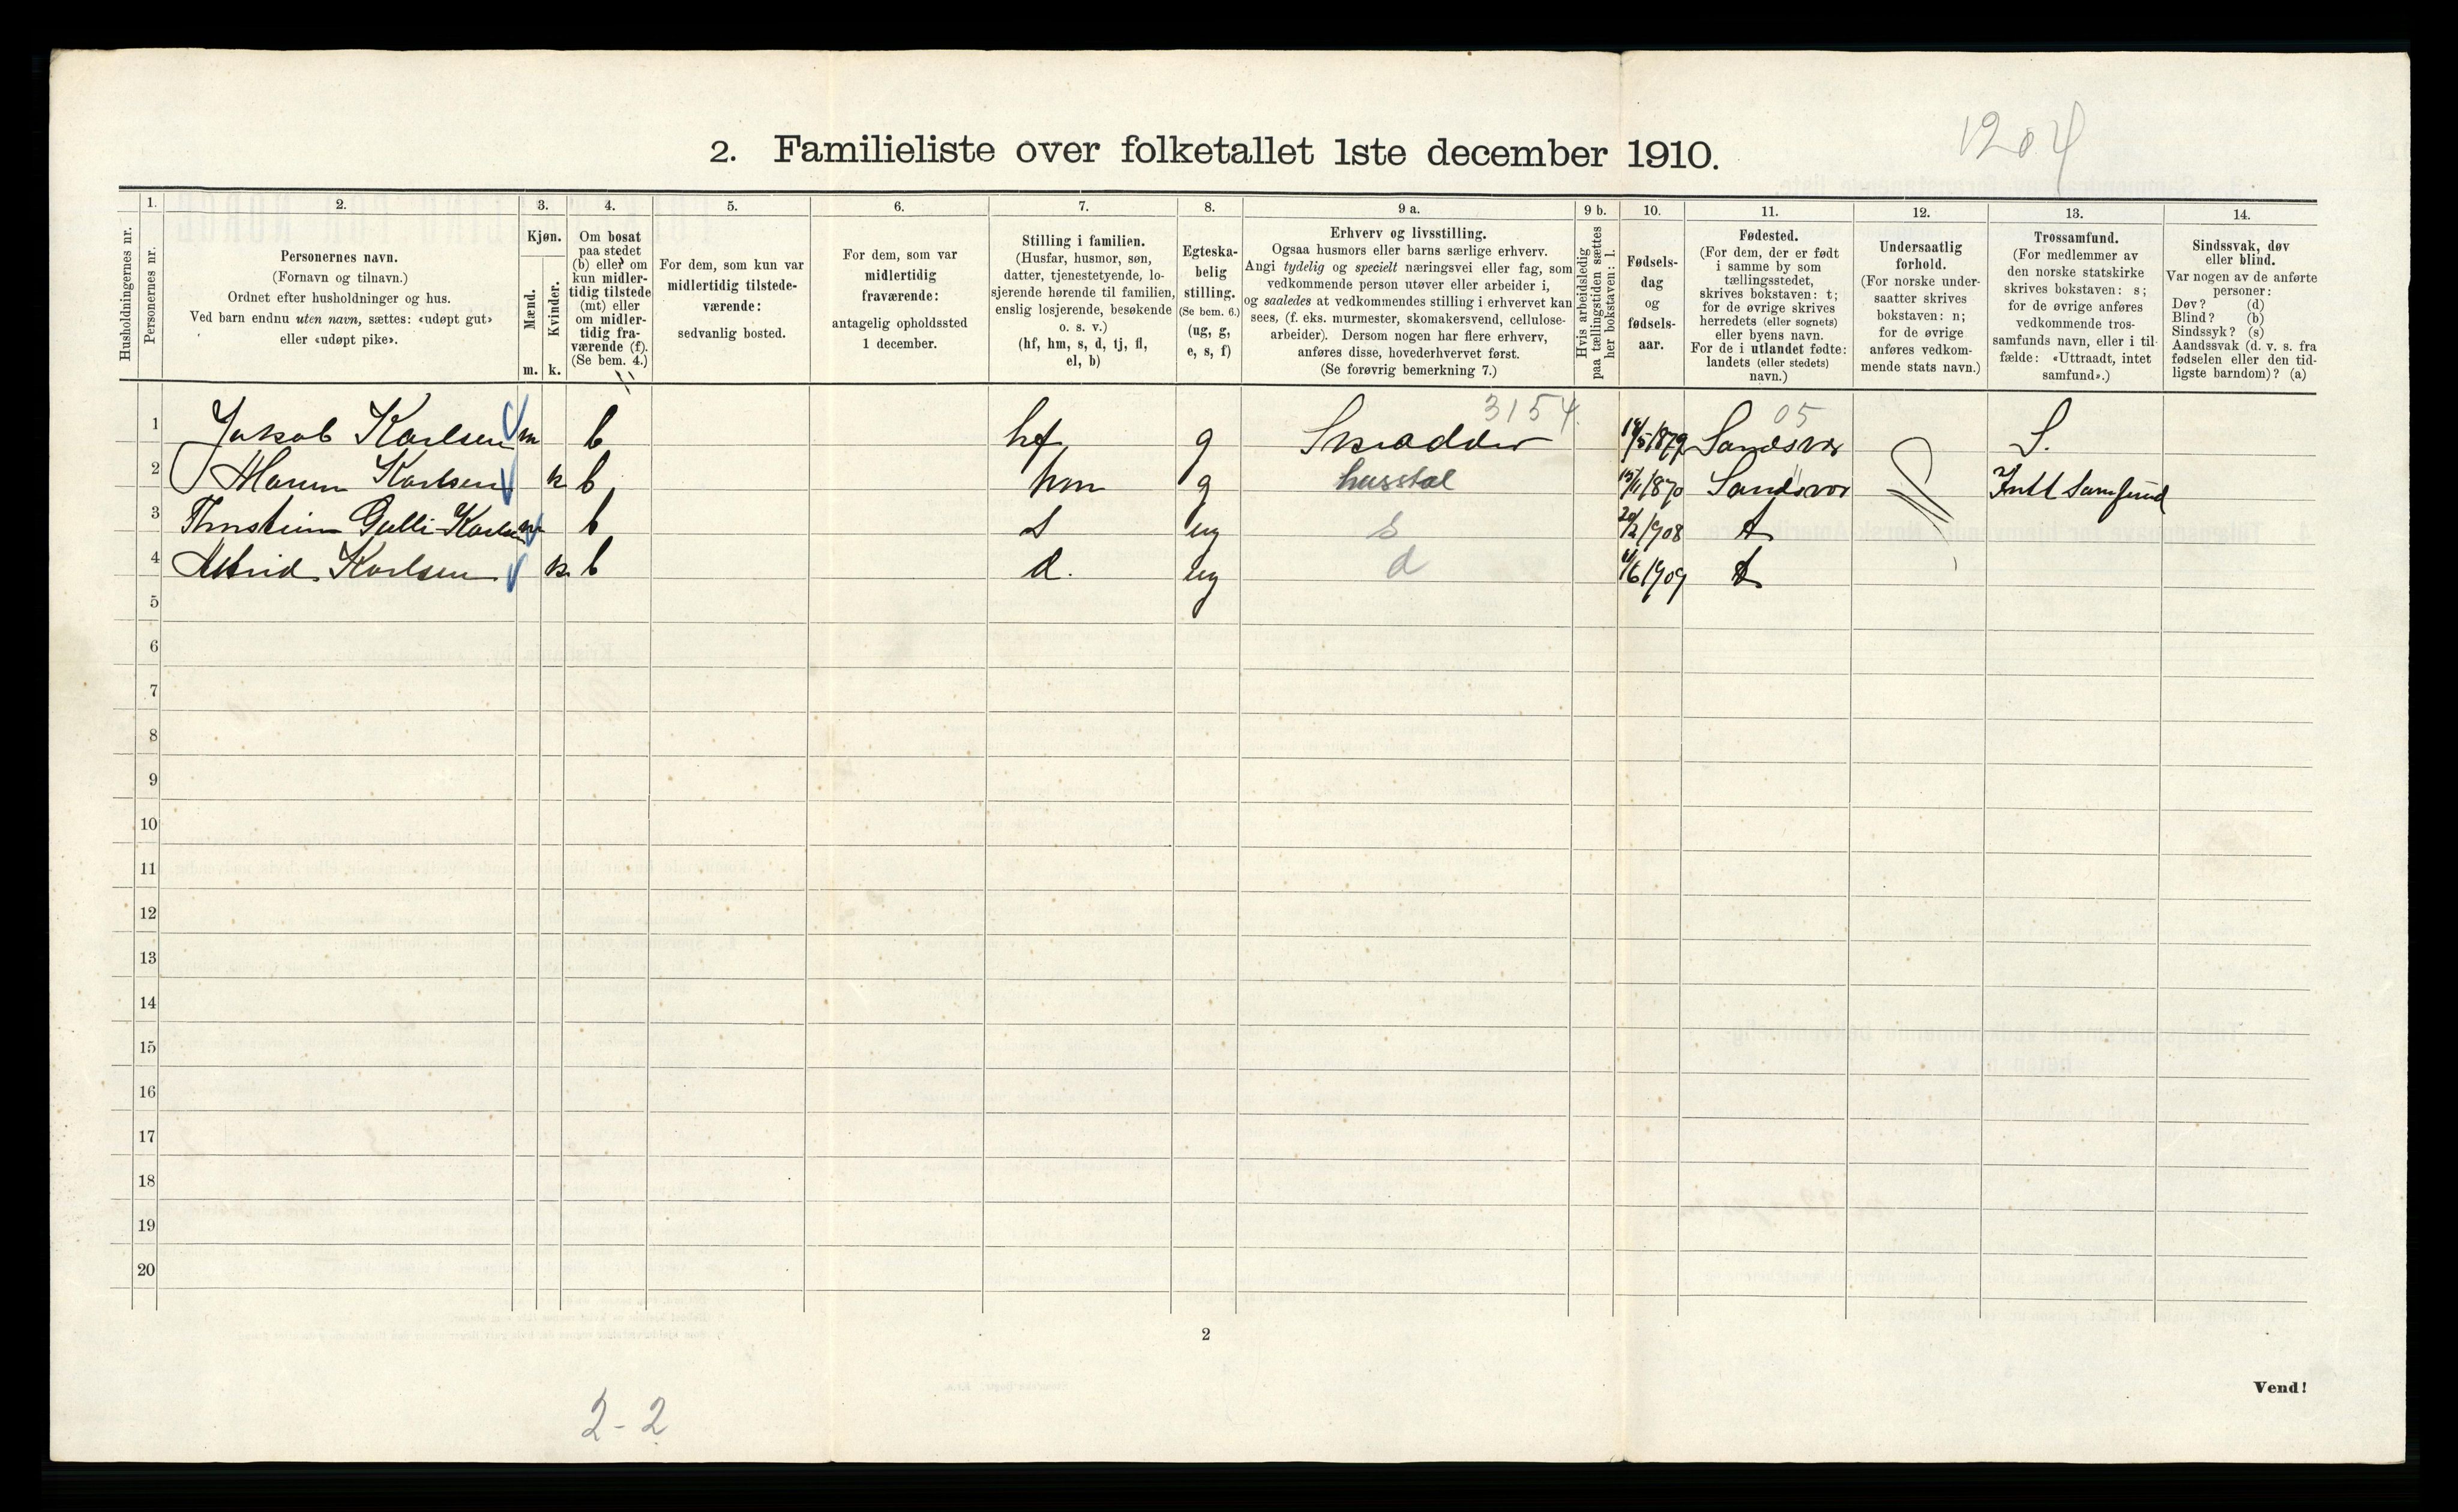 1204
2. Familieliste over folketallet 1ste december 1910.
Husholdningernes nr.
1.
Personernes nr.
2.
Personernes navn.
(Fornavn og tilnavn.)
Ordnet efter husholdninger og hus.
Ved barn endnu uten navn, sættes: «udøpt gut»
eller «udøpt pike».
3.
Kjøn.
Mænd.
Kvinder.
m. k.
4.
Om bosat
paa stedet
(b) eller om
kun midler-
tidig tilstede
(mt) eller
om midler-
tidig fra-
værende (f).
(Se bem. 4.)
5.
For dem, som kun var
midlertidig tilstede-
værende:
sedvanlig bosted.
6.
For dem, som var
midlertidig
fraværende:
antagelig opholdssted
1 december.
7.
Stilling i familien.
(Husfar, husmor, søn,
datter, tjenestetyende, lo-
sjerende hørende til familien,
enslig losjerende, besøkende
o. s. v.)
(hf, hm, s, d, tj, fl,
el, b)
8.
Egteska-
belig
stilling.
(Se bem. 6.)
(ug, g,
e, s, f)
9 a.
Erhverv og livsstilling.
Ogsaa husmors eller barns særlige erhverv.
Angi tydelig og specielt næringsvei eller fag, som
vedkommende person utøver eller arbeider i,
og saaledes at vedkommendes stilling i erhvervet kan
sees, (f. eks. murmester, skomakersvend, cellulose-
arbeider). Dersom nogen har flere erhverv,
anføres disse, hovederhvervet først.
(Se forøvrig bemerkning 7.)
9 b.
Hvis arbeidsledig
paa tællingstiden sættes
her bokstaven: l.
10.
Fødsels-
dag
og
fødsels-
aar.
11.
Fødested.
(For dem, der er født
i samme by som
tællingsstedet,
skrives bokstaven: t;
for de øvrige skrives
herredets (eller sognets)
eller byens navn.
For de i utlandet fødte:
landets (eller stedets)
navn.)
12.
Undersaatlig
forhold.
(For norske under-
saatter skrives
bokstaven: n;
for de øvrige
anføres vedkom-
mende stats navn.)
13.
Trossamfund.
(For medlemmer av
den norske statskirke
skrives bokstaven: s;
for de øvrige anføres
vedkommende tros-
samfunds navn, eller i til-
fælde: «Uttraadt, intet
samfund».)
14.
Sindssvak, døv
eller blind.
Var nogen av de anførte
personer:
Døv? (d)
Blind? (b)
Sindssyk? (s)
Aandssvak (d. v. s. fra
fødselen eller den tid-
ligste barndom)? (a)
3154. 05
1 Jakob Karlsen m b hf g Skrædder 14/5 1879 Sandsvær S.
2 Maren Karlsen k b hm g husstel 15/11 1870 Sandsvær Intet Samfund
3 Thorstein Gulli Karlsen m b s ug s 20/2 1908 t
4 Astrid Karlsen k b d. ug d 11/6 1909 t
5
6
7
8
9
10
11
12
13
14
15
16
17
18
19
20
2
Vend!
2-2